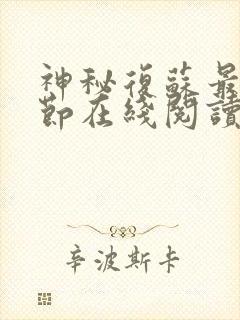 神秘復蘇最
節在綫閱讀
辛波斯卡